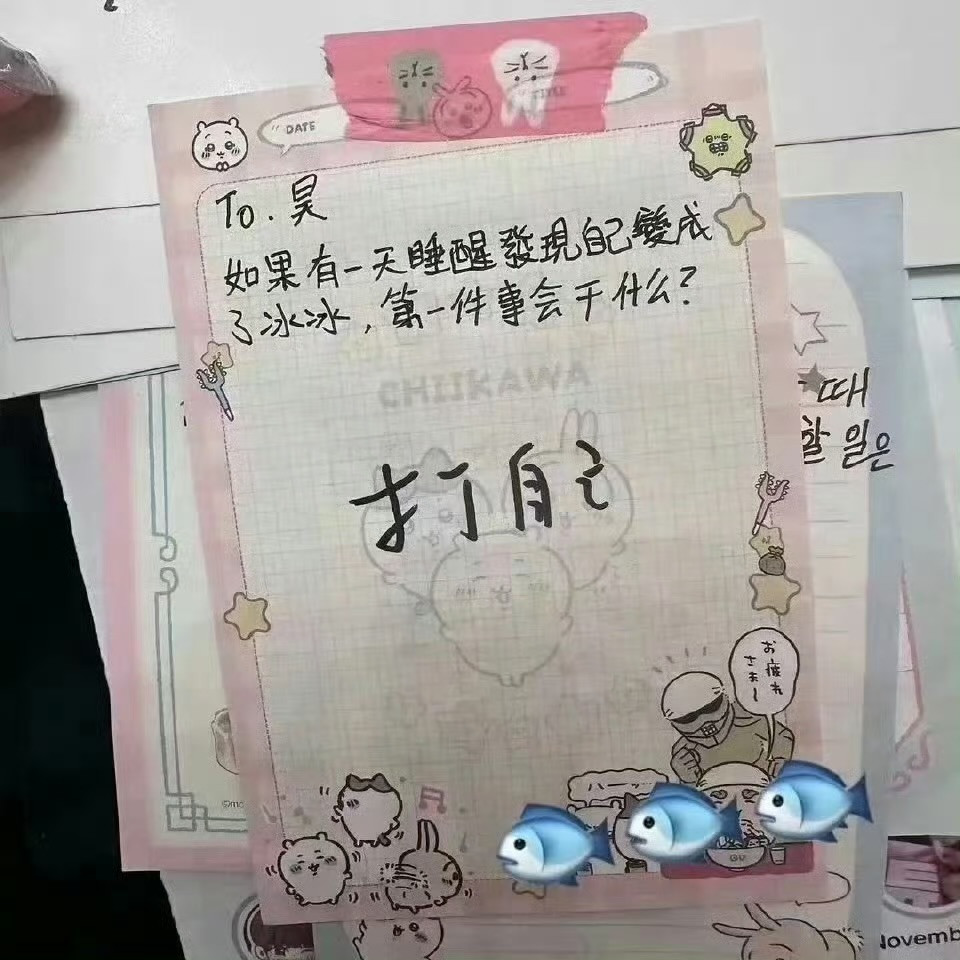 DATE
To. 昊
如果有一天睡醒發現自己變成
了冰冰，第一件事会干什么？
CHIIKAWA
때
할 일은
打自己
お疲れ
さま〜
Novemb